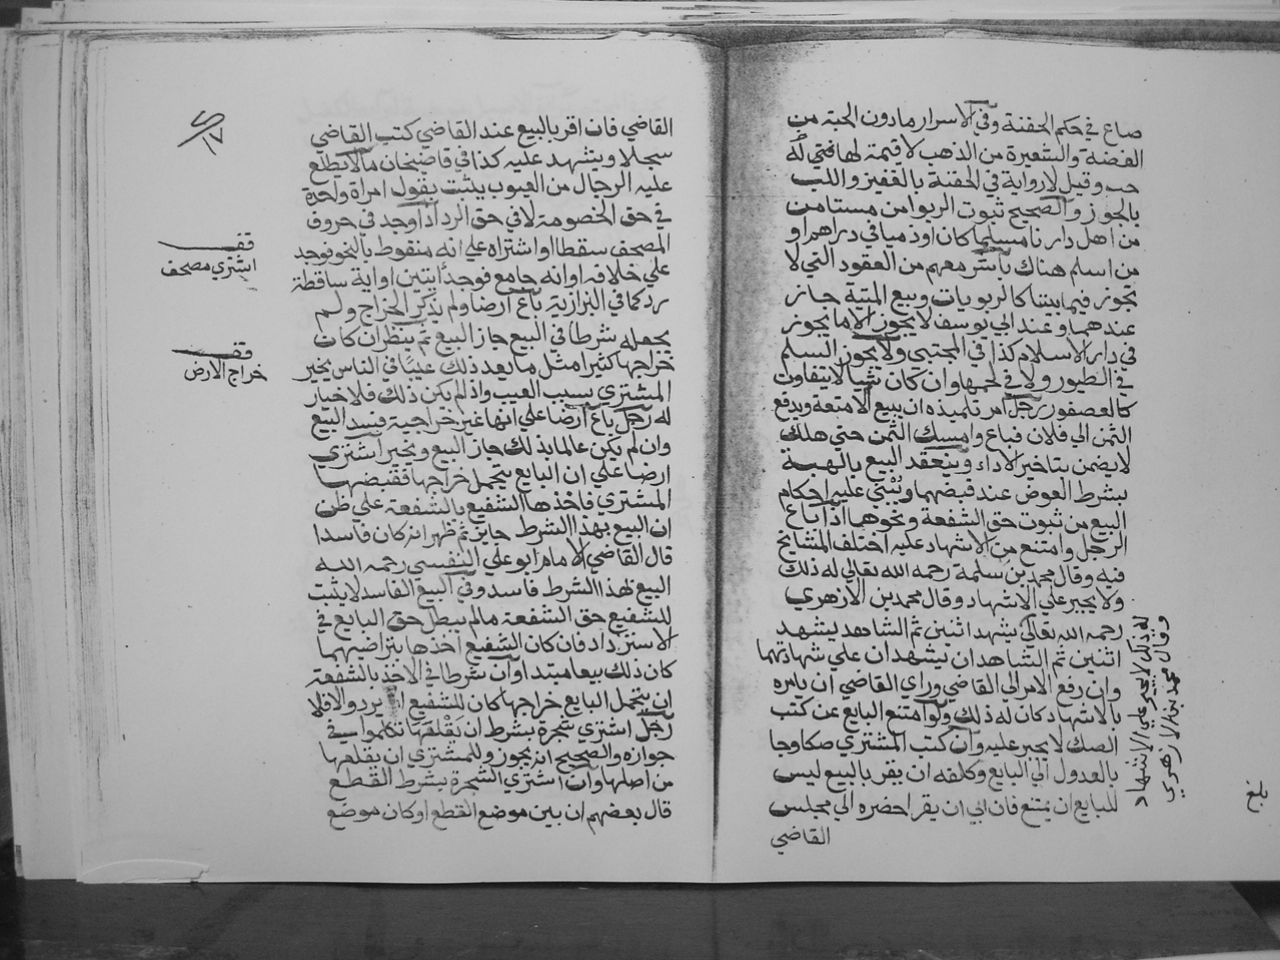 صاع في حكم الحفنة وفي الاسرار مادون الحبة من
الفضة والشعيرة من الذهب لاقيمة لها فتي له
حب وقيل لارواية في الحفنة بالقفيز واللب
بالجوز والصحيح ثبوت الربوا من مستامن
من اهل دارنا مسلما كان اوذميا في دارهم او
من اسلم هناك باشر معهم من العقود التي لا
تجوز فيما بيننا كالربويات وبيع الميتة جاز
عندهما وعند ابي يوسف لايجوز الا مايجوز
في دار الاسلام كذا في المجتبي ولايجوز السلم
في الطيور ولا في لحمها وان كان شيا لايتفاوت
كالعصفور رجل امر تلميذه ان يبيع الامتعة ويدفع
الثمن الي فلان فباع وامسك الثمن حتي هلك
لايضمن بتاخير الاداء وينعقد البيع بالهبة
بشرط العوض عند قبضهما ويبني عليه احكام
البيع من ثبوت حق الشفعة ونحوها اذا باع
الرجل وامتنع من الاشهاد عليه اختلف المشايخ
فيه وقال محمد بن سلمة رحمه الله تعالي له ذلك
ولايجبر علي الاشهاد وقال محمد بن الازهري
رحمه الله تعالي يشهد اثنين ثم الشاهد يشهد
اثنين ثم الشاهدان يشهدان علي شهادتهما
وان رفع الامر الي القاضي وراي القاضي ان يامره
بالاشهاد كان له ذلك ولو امتنع البايع عن كتب
الصك لايجبر عليه وان كتب المشتري صكا وجا
بالعدول الي البايع وكلفه ان يقر بالبيع ليس
للبايع ان يمتنع فان ابي ان يقر احضره الي مجلس
القاضي
له ذلك لايجبر علي الاشهاد
وقال محمد بن الازهري
بلغ
القاضي فان اقر بالبيع عند القاضي كتب القاضي
سجلا ويشهد عليه كذا في قاضيخان مالايطلع
عليه الرجال من العيوب يثبت بقول امراة واحدة
في حق الخصومة لافي حق الرد اذا وجد في حروف
المصحف سقطا او اشتراه علي انه منقوط بالنحو فوجد
علي خلافه او انه جامع فوجد ايتين او اية ساقطة
رد كما في البزازية باع ارضا ولم يذكر الخراج ولم
يجعله شرطا في البيع جاز البيع ثم ينظر ان كان
خراجها كثيرا مثل ما يعد ذلك عيبا في الناس يخير
المشتري بسبب العيب واذ لم يكن ذلك فلاخيار
له رجل باع ارضا علي انها غير خراجية فسد البيع
وان لم يكن عالما بذلك جاز البيع ويخير اشتري
ارضا علي ان البايع يتحمل خراجها فقبضها
المشتري فاخذها الشفيع بالشفعة علي ظن
ان البيع بهذا الشرط جايز ثم ظهر انه كان فاسدا
قال القاضي الامام ابو علي النسفي رحمه الله
البيع بهذا الشرط فاسد وفي البيع الفاسد لايثبت
للشفيع حق الشفعة مالم يبطل حق البايع في
الاسترداد فان كان الشفيع اخذها بتراضيهما
كان ذلك بيعا مبتدا وان شرطا في الاخذ بالشفعة
ان يتحمل البايع خراجها كان للشفيع يرد والافلا
رجل اشتري شجرة بشرط ان يقلعها تكلموا في
جوازه والصحيح انه يجوز وللمشتري ان يقلعها
من اصلها وان اشتري الشجرة بشرط القطع
قال بعضهم ان بين موضع القطع اوكان موضع
١٧
قف
اشتري مصحف
قف
خراج الارض